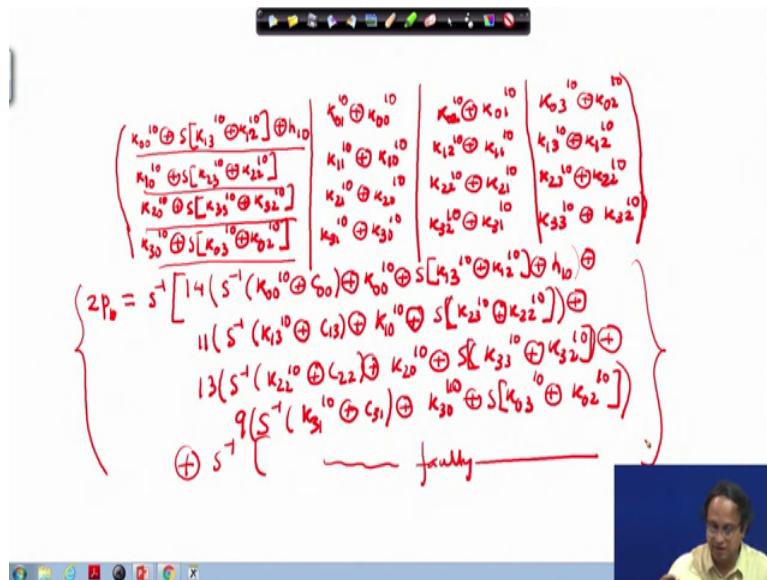 K₀₀¹⁰ ⊕ S[K₁₃¹⁰ ⊕ K₁₂¹⁰] ⊕ h₁₀ | K₀₁¹⁰ ⊕ K₀₀¹⁰ | K₀₂¹⁰ ⊕ K₀₁¹⁰ | K₀₃¹⁰ ⊕ K₀₂¹⁰
K₁₀¹⁰ ⊕ S[K₂₃¹⁰ ⊕ K₂₂¹⁰] | K₁₁¹⁰ ⊕ K₁₀¹⁰ | K₁₂¹⁰ ⊕ K₁₁¹⁰ | K₁₃¹⁰ ⊕ K₁₂¹⁰
K₂₀¹⁰ ⊕ S[K₃₃¹⁰ ⊕ K₃₂¹⁰] | K₂₁¹⁰ ⊕ K₂₀¹⁰ | K₂₂¹⁰ ⊕ K₂₁¹⁰ | K₂₃¹⁰ ⊕ K₂₂¹⁰
K₃₀¹⁰ ⊕ S[K₀₃¹⁰ ⊕ K₀₂¹⁰] | K₃₁¹⁰ ⊕ K₃₀¹⁰ | K₃₂¹⁰ ⊕ K₃₁¹⁰ | K₃₃¹⁰ ⊕ K₃₂¹⁰
= S⁻¹[14(S⁻¹(K₀₀¹⁰ ⊕ C₀₀) ⊕ K₀₀¹⁰ ⊕ S[K₁₃¹⁰ ⊕ K₁₂¹⁰] ⊕ h₁₀) ⊕
11(S⁻¹(K₁₃¹⁰ ⊕ C₁₃) ⊕ K₁₀¹⁰ ⊕ S[K₂₃¹⁰ ⊕ K₂₂¹⁰]) ⊕
13(S⁻¹(K₂₂¹⁰ ⊕ C₂₂) ⊕ K₂₀¹⁰ ⊕ S[K₃₃¹⁰ ⊕ K₃₂¹⁰]) ⊕
9(S⁻¹(K₃₁¹⁰ ⊕ C₃₁) ⊕ K₃₀¹⁰ ⊕ S[K₀₃¹⁰ ⊕ K₀₂¹⁰])
⊕ S⁻¹[ faulty